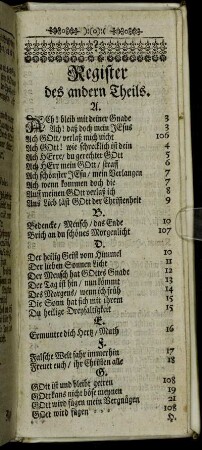 Register
des andern Theils.
A.
ACh! bleib mit deiner Gnade 3
Ach! daß doch mein JEsus 3
Ach GOtt, verlaß mich nicht 106
Ach GOtt! wie schrecklich ist dein 4
Ach HErre/ du gerechter GOtt 5
Ach HErr mein GOtt / straff 6
Ach schönster JEsu / mein Verlangen 7
Ach wenn kommen doch die 7
Aus meinen GOtt verlaß ich 8
Aus Lieb läßt GOtt der Christenheit 9
B.
Bedencke/ Mensch/ das Ende 10
Brich an du schönes Morgenlicht 107
D.
Der heilig Geist vom Himmel 10
Der lieben Sonnen Licht 11
Der Mensch hat GOttes Gnade 12
Der Tag ist hin / nun kömmt 13
Des Morgens/ wenn ich früh 14
Die Sonn hat sich mit ihrem 15
Du heilige Dreyfaltigkeit 15
E.
Ermuntre dich Hertz/ Muth 16
F.
Falsche Welt fahr immerhin 17
Freuet euch/ ihr Christen alle 18
G.
GOtt ist und bleibt getreu 108
GOtt kans nicht böse meynen 19
GOtt wird fügen mein Vergnügen 21
GOtt wird fügen 108